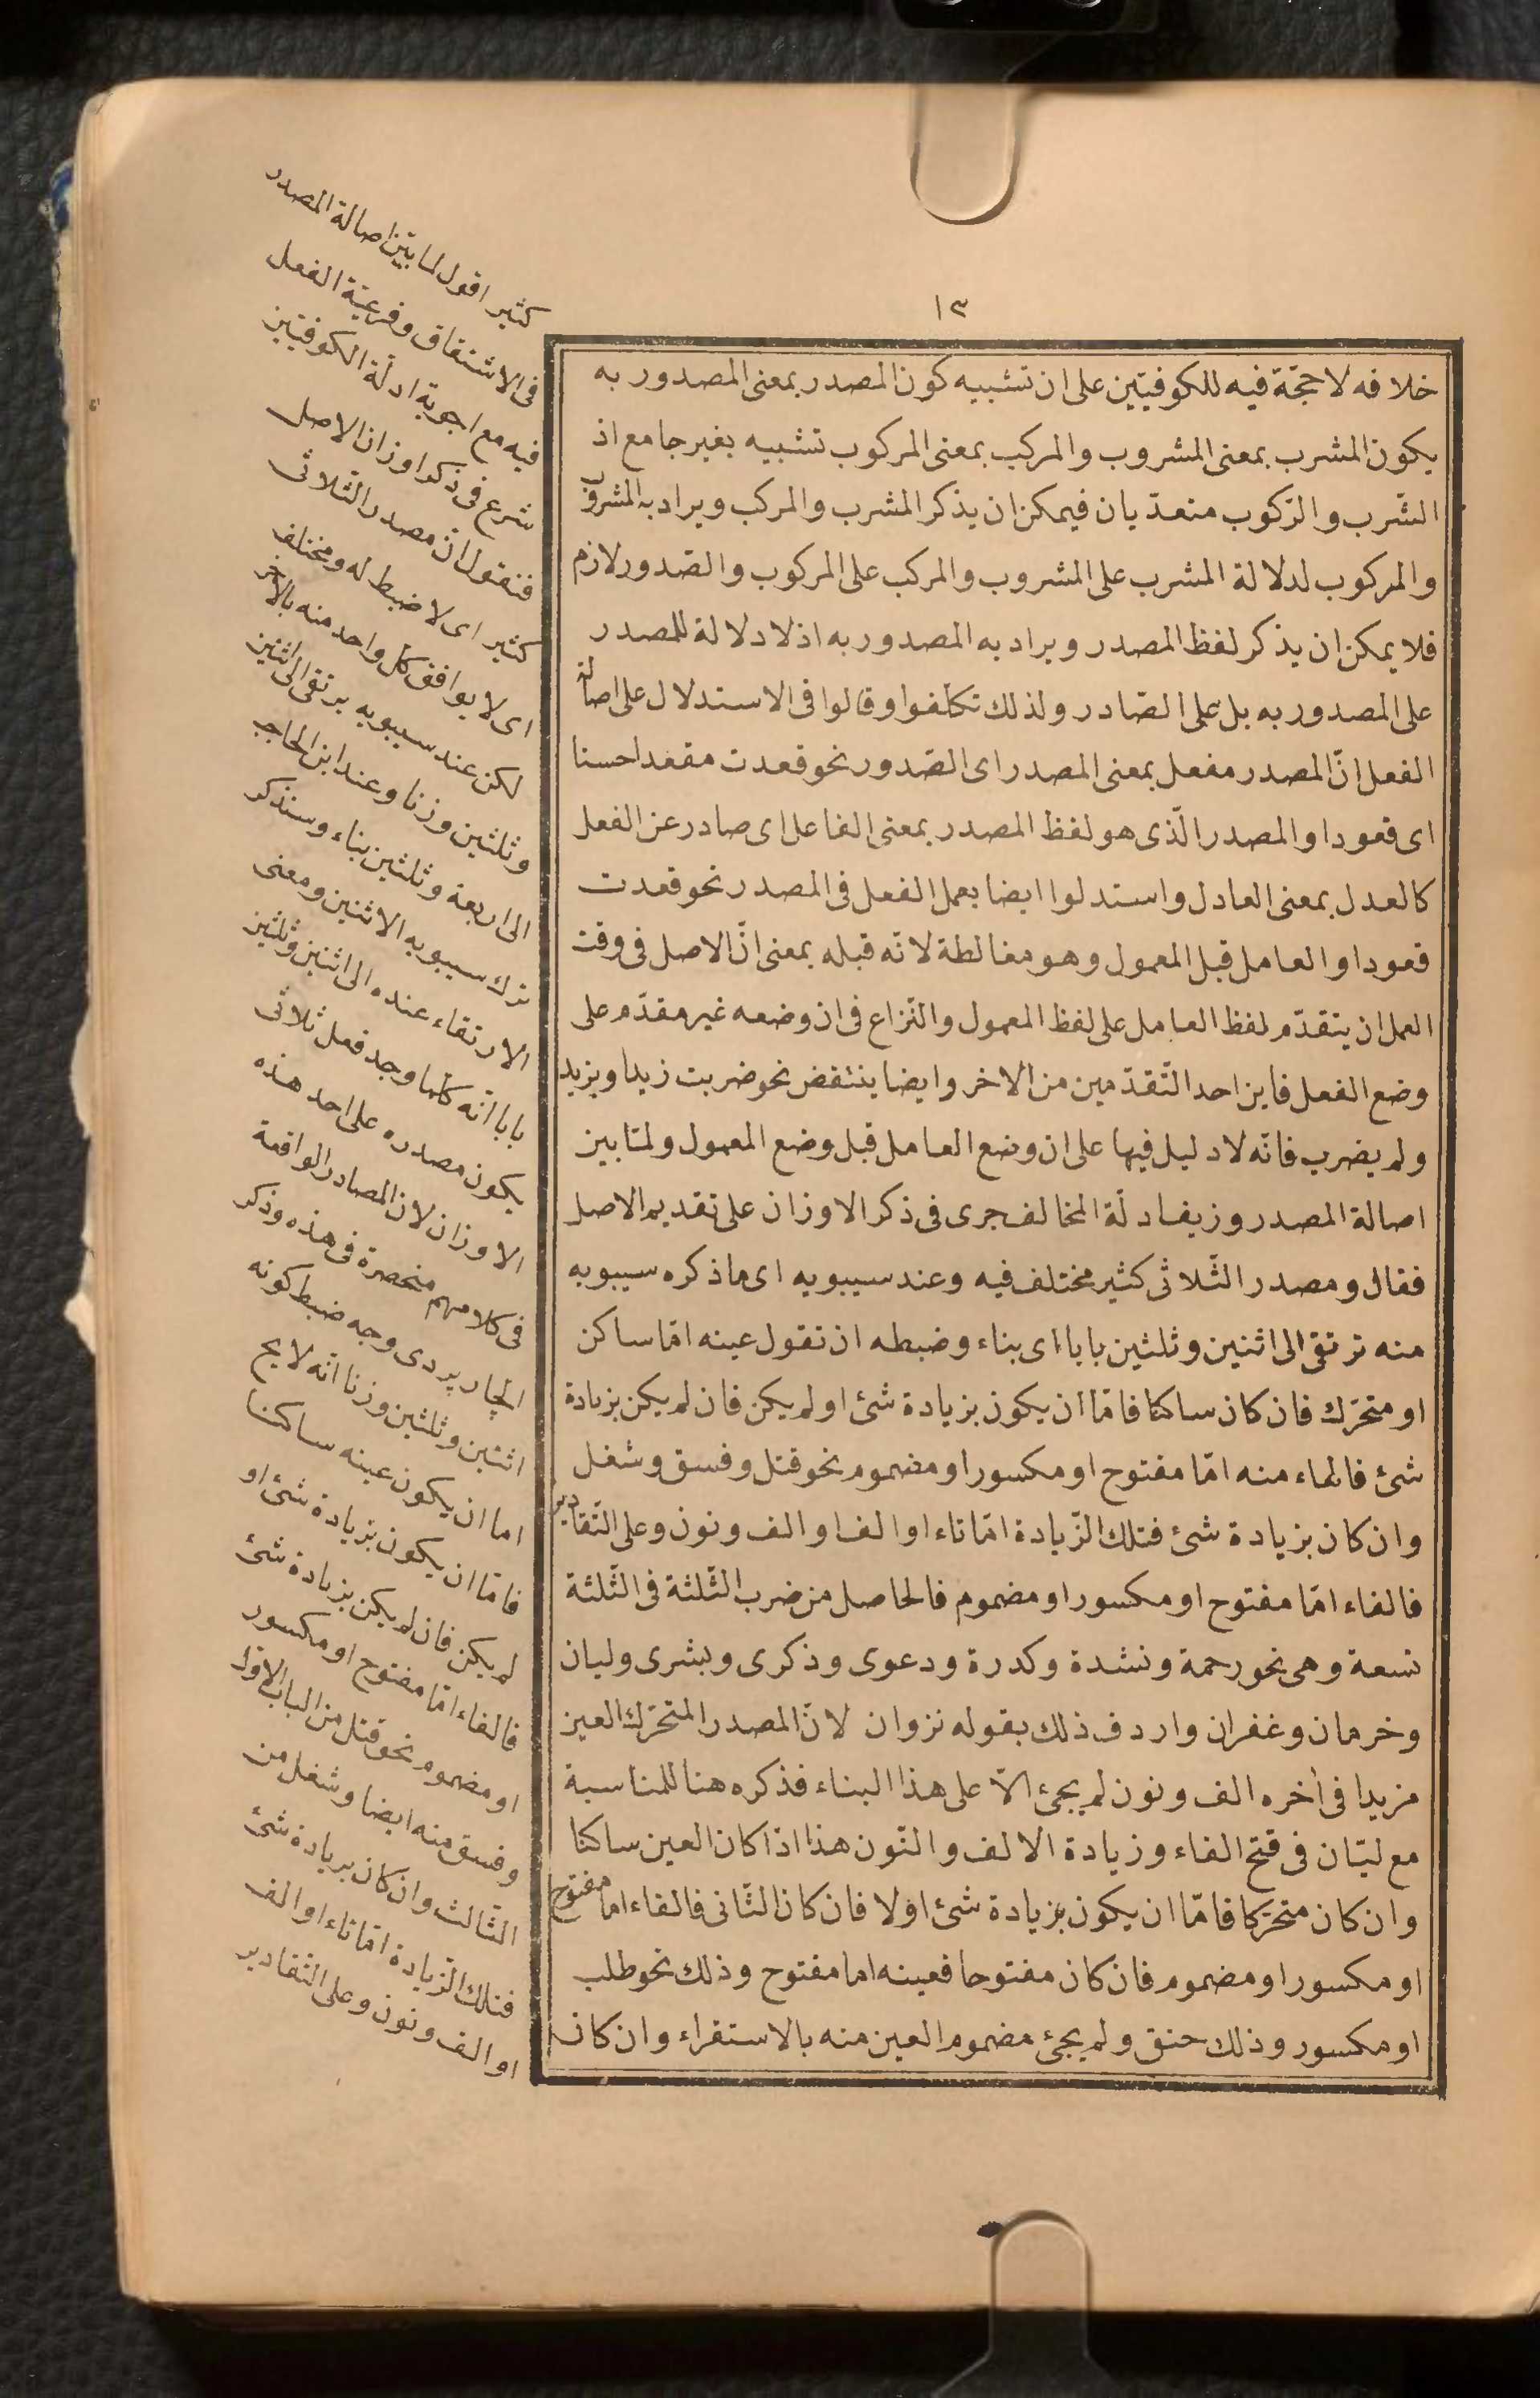 ١٣
خلافه لا حجّة فيه للكوفيّين على ان تشبيه كون المصدر بمعنى المصدور به
يكون المشرب بمعنى المشروب والمركب بمعنى المركوب تشبيه بغير جامع اذ
الشّرب والرّكوب متعدّيان فيمكن ان يذكر المشرب والمركب ويراد به المشروب
والمركوب لدلالة المشرب على المشروب والمركب على المركوب والصّدور لازم
فلا يمكن ان يذكر لفظ المصدر ويراد به المصدور به اذ لا دلالة للمصدر
على المصدور به بل على الصّادر ولذلك تكلّفوا وقالوا فى الاستدلال على اصالة
الفعل انّ المصدر مفعل بمعنى المصدر اى الصّدور نحو قعدت مقعدا حسنا
اى قعودا والمصدر الّذى هو لفظ المصدر بمعنى الفاعل اى صادر عن الفعل
كالعدل بمعنى العادل واستدلوا ايضا بعمل الفعل فى المصدر نحو قعدت
قعودا والعامل قبل المعمول وهو مغالطة لانّه قبله بمعنى انّ الاصل فى وقت
العمل ان يتقدّم لفظ العامل على لفظ المعمول والنّزاع فى ان وضعه غير مقدّم على
وضع الفعل فاين احد التّقدّمين من الاخر وايضا ينتقض نحو ضربت زيدا وبزيد
ولم يضرب فانّه لا دليل فيها على ان وضع العامل قبل وضع المعمول ولمّا بين
اصالة المصدر وزيف ادلّة المخالف جرى فى ذكر الاوزان على تقديم الاصل
فقال ومصدر الثّلاثى كثير مختلف فيه وعند سيبويه اى ما ذكره سيبويه
منه ترتقى الى اثنين وثلثين بابا اى بناء وضبطه ان تقول عينه امّا ساكن
او متحرّك فان كان ساكنا فامّا ان يكون بزيادة شئ او لم يكن فان لم يكن بزيادة
شئ فالفاء منه امّا مفتوح او مكسور او مضموم نحو قتل وفسق وشغل
وان كان بزيادة شئ فتلك الزّيادة امّا تاء او الف او الف ونون وعلى التّقادير
فالفاء امّا مفتوح او مكسور او مضموم فالحاصل من ضرب الثّلثة فى الثّلثة
تسعة وهى نحو رحمة ونشدة وكدرة ودعوى وذكرى وبشرى وليان
وخرمان وغفران واردف ذلك بقوله نزوان لانّ المصدر المتحرّك العين
مزيدا فى أخره الف ونون لم يجئ الّا على هذا البناء فذكره هنا للمناسبة
مع ليّان فى فتح الفاء وزيادة الالف والنّون هذا اذا كان العين ساكنا
وان كان متحرّكا فامّا ان يكون بزيادة شئ اولا فان كان الثّانى فالفاء اما مفتوح
او مكسور او مضموم فان كان مفتوحا فعينه اما مفتوح وذلك نحو طلب
او مكسور وذلك حنق ولم يجئ مضموم العين منه بالاستقراء وان كان
كثير اقول لما بيّن اصالة المصدر
فى الاشتقاق وفرعيّة الفعل
فيه مع اجوبة ادلّة الكوفيّين
شرع فى ذكر اوزان الاصل
فنقول انّ مصدر الثّلاثى
كثير اى لا ضبط له ومختلف
اى لا يوافق كل واحد منه بالآخر
لكن عند سيبويه يرتقى الى اثنين
وثلثين وزنا وعند ابن الحاجب
الى اربعة وثلثين بناء وسنذكر
ترك سيبويه الاثنين ومعنى
الارتقاء عنده الى اثنين وثلثين
بابا انّه كلّما وجد فعل ثلاثى
يكون مصدره على احد هذه
الاوزان لان المصادر الواقعة
فى كلامهم منحصرة فى هذه وذكر
الجار پردى وجه ضبط كونه
اثنين وثلثين وزنا انّه لا يخ
اما ان يكون عينه ساكنا
فامّا ان يكون بزيادة شئ او
لم يكن فان لم يكن بزيادة شئ
فالفاء امّا مفتوح او مكسور
او مضموم نحو قتل من الباب الاوّل
وفسق منه ايضا وشغل من
الثّالث وان كان بزيادة شئ
فتلك الزّيادة امّا تاء او الف
او الف ونون وعلى التّقادير